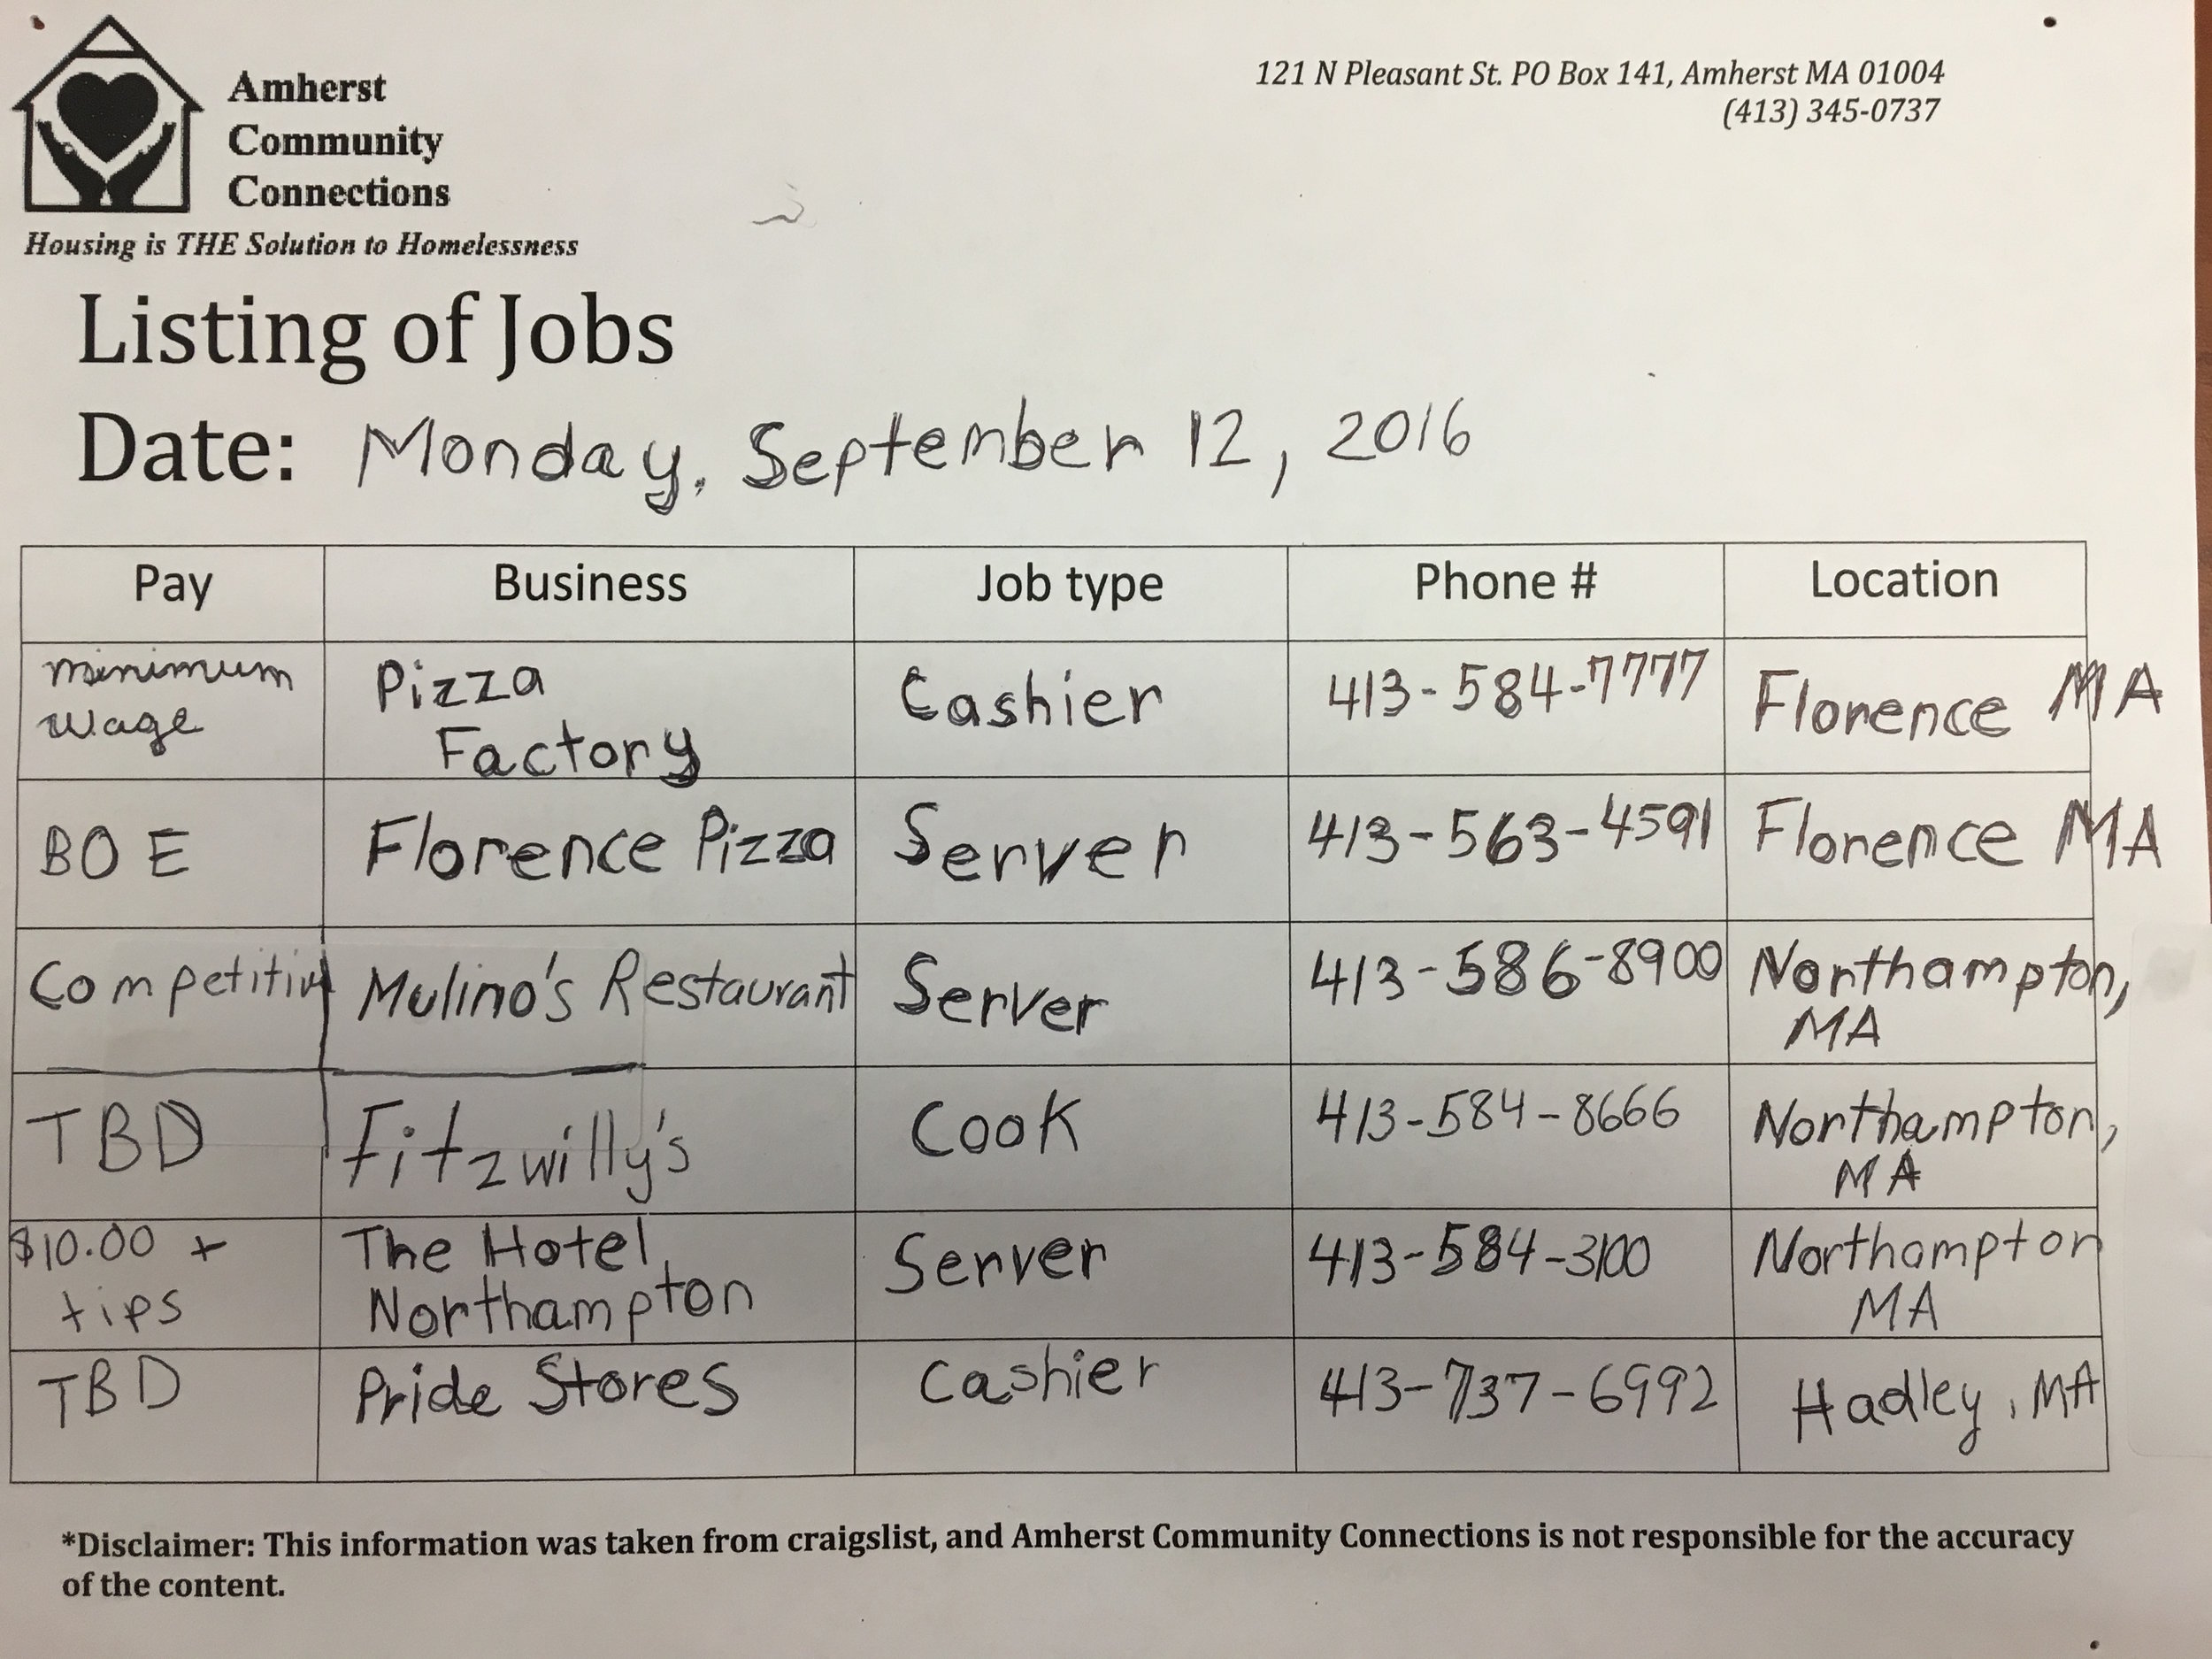 Amherst
Community
Connections
Housing is THE Solution to Homelessness
121 N Pleasant St. PO Box 141, Amherst MA 01004
(413) 345-0737
Listing of Jobs
Date: Monday, September 12, 2016
Pay Business Job type Phone # Location
minimum wage Pizza Factory Cashier 413-584-7777 Florence MA
BOE Florence Pizza Server 413-563-4591 Florence MA
Competitive Mulino's Restaurant Server 413-586-8900 Northampton, MA
TBD Fitzwilly's Cook 413-584-8666 Northampton, MA
$10.00 + tips The Hotel Northampton Server 413-584-3100 Northampton MA
TBD Pride Stores Cashier 413-737-6992 Hadley, MA
*Disclaimer: This information was taken from craigslist, and Amherst Community Connections is not responsible for the accuracy
of the content.